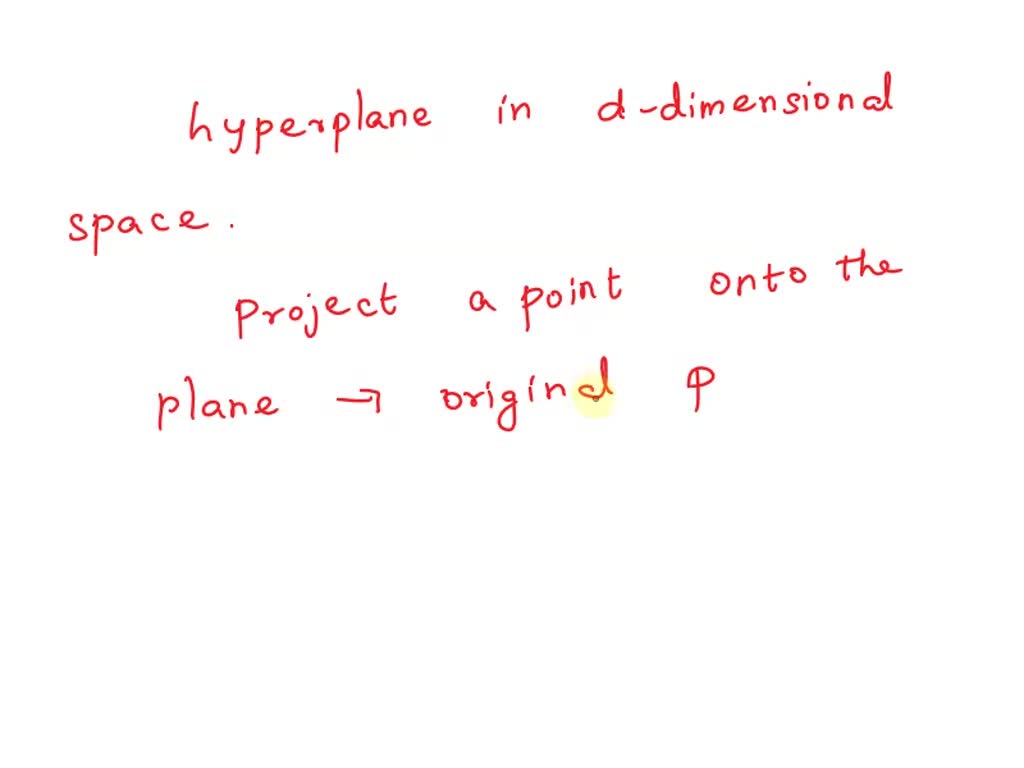 hyperplane in d-dimensional
space.
project a point onto the
plane → original P